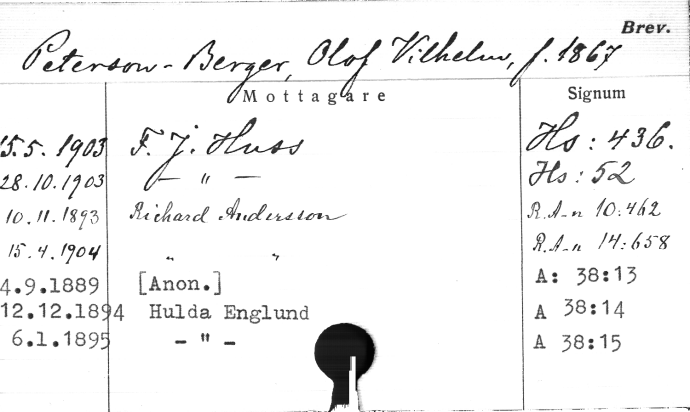 Brev.
Peterson-Berger, Olof Vilhelm, f. 1867
Mottagare Signum
15.5.1903 F. J. Huss Hs: 436.
28.10.1903 — " — Hs: 52
10.11.1893 Richard Andersson R.A-n 10:462
15.4.1904 " " R.A-n 14:658
4.9.1889 [Anon.] A: 38:13
12.12.1894 Hulda Englund A 38:14
6.1.1895 — " — A 38:15